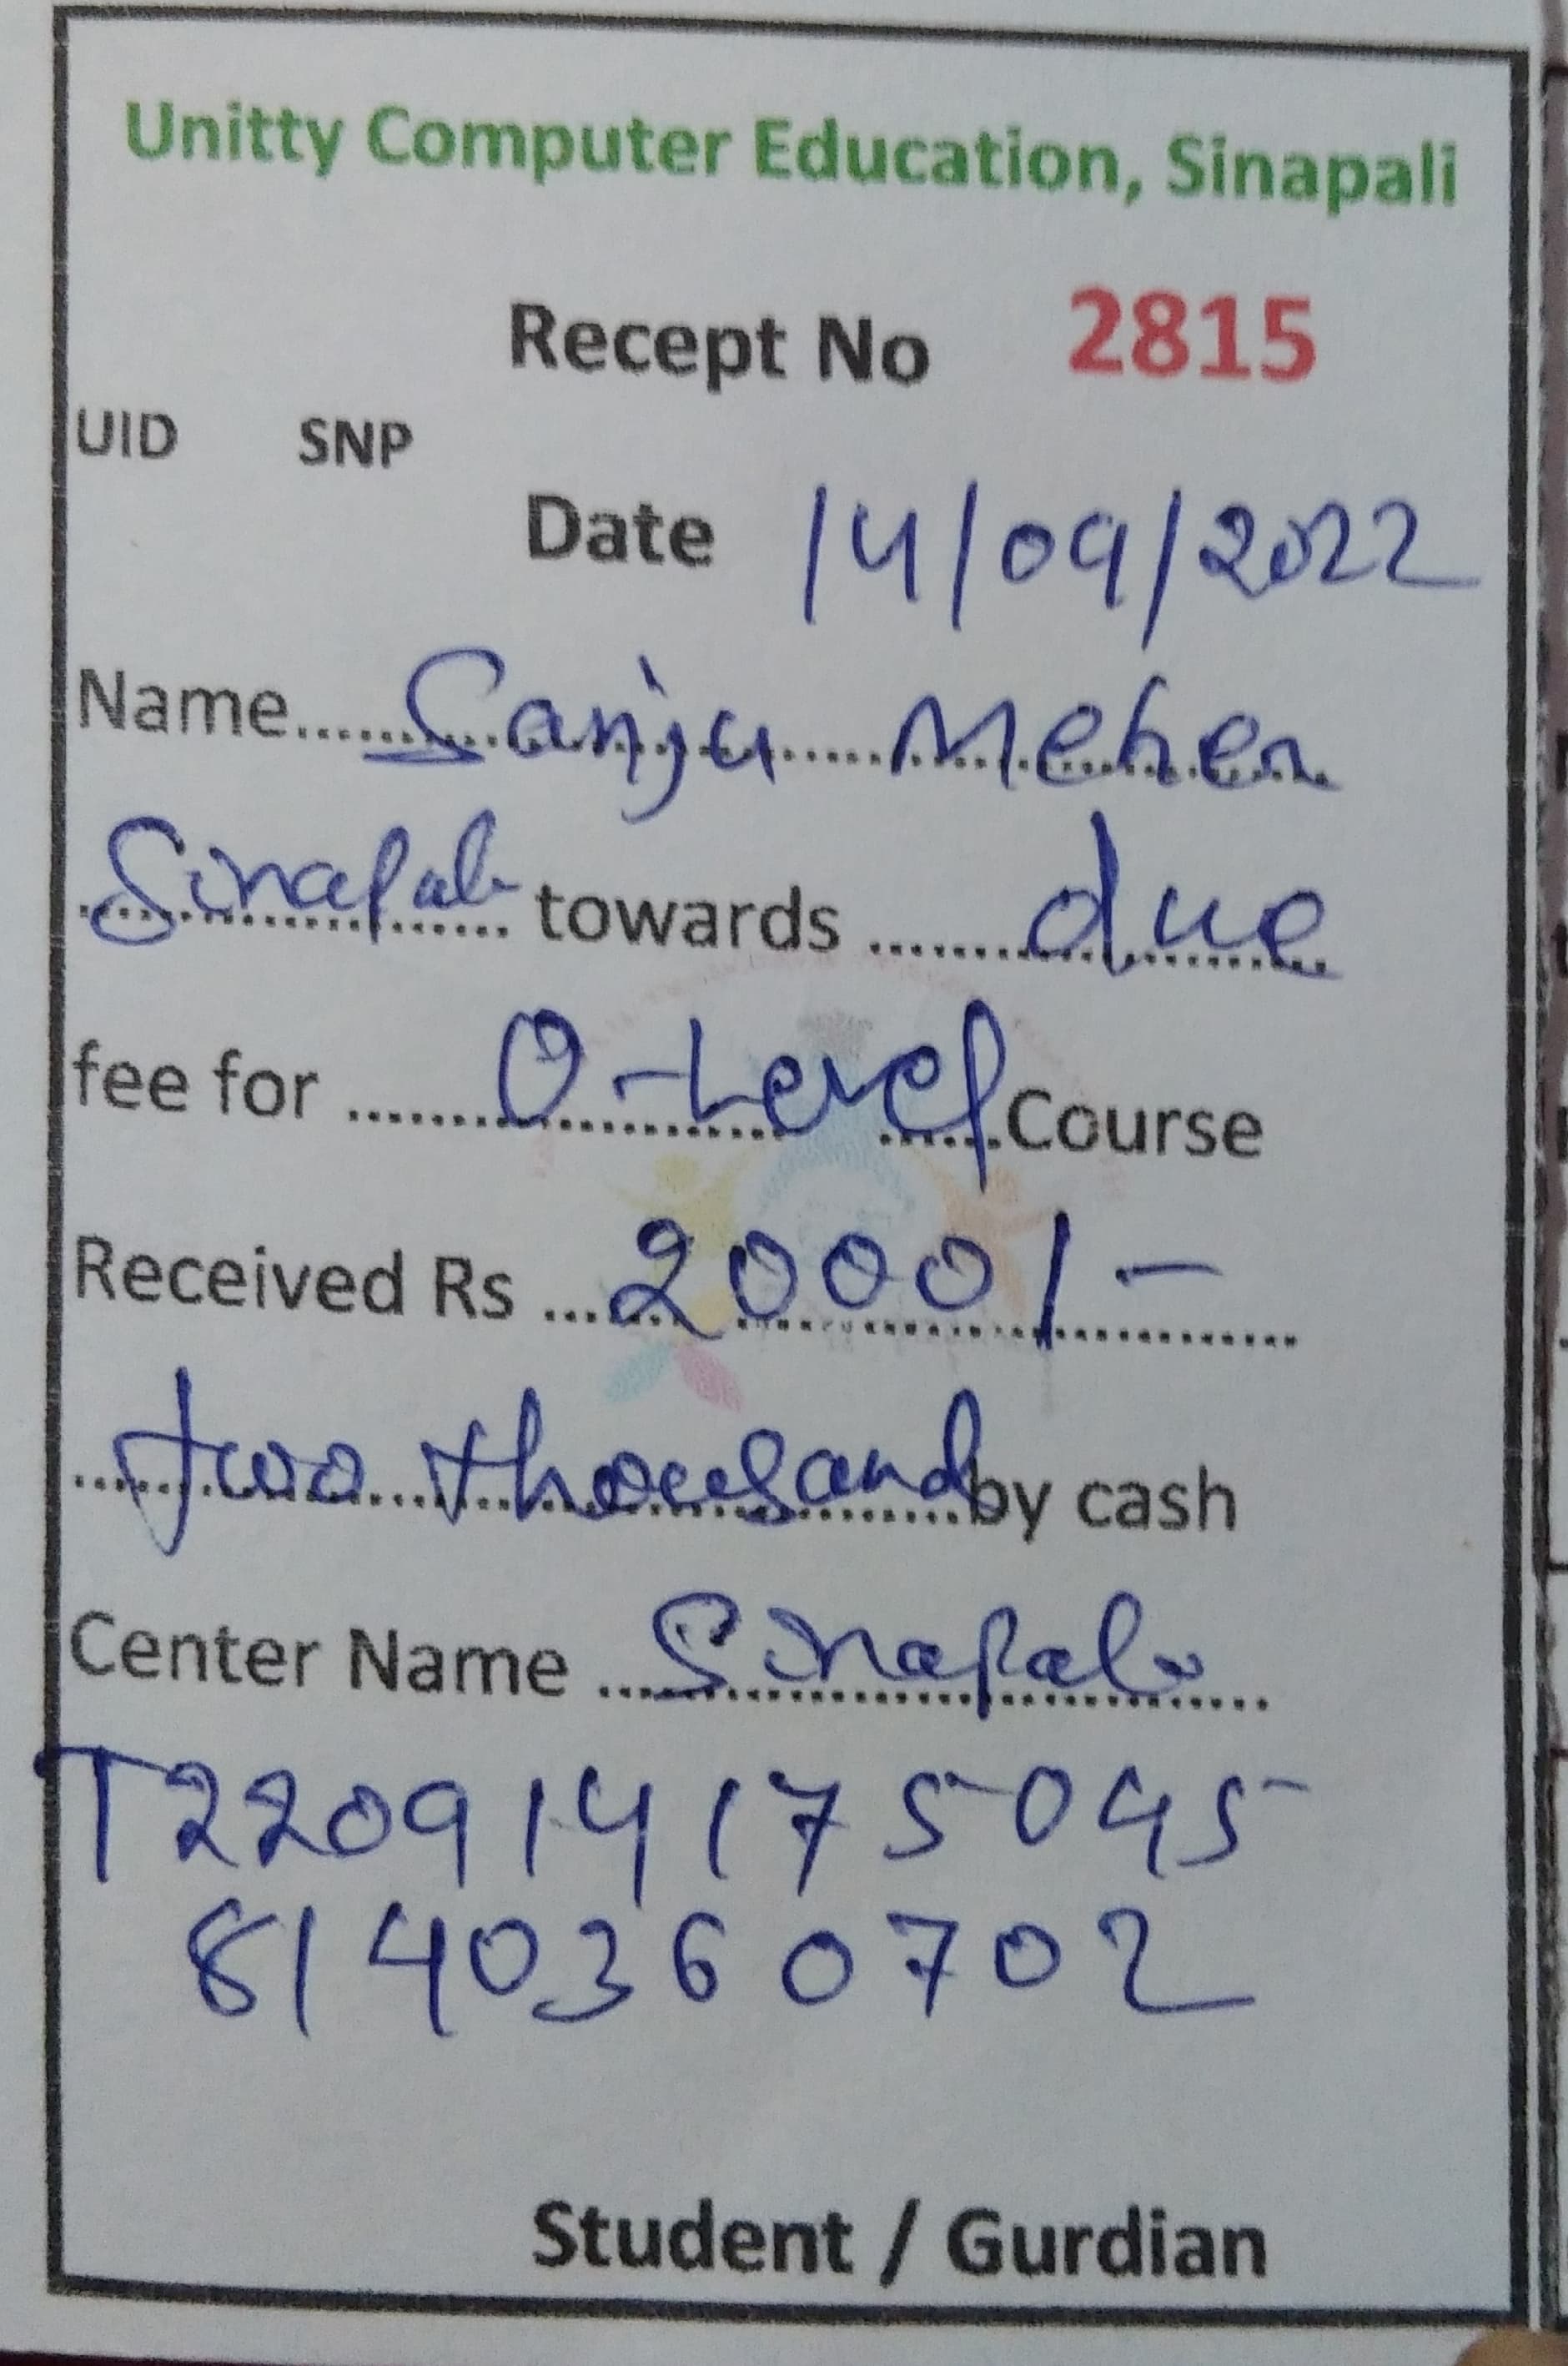 Unitty Computer Education, Sinapali
Recept No 2815
UID SNP
Date 14/09/2022
Name..... Sanju Meher
Sinapali towards ..... due
fee for ..... O-Level Course
Received Rs ... 2000/-
..... two thousand by cash
Center Name ... Sinapali
T2209141750495
8140360702
Student / Gurdian